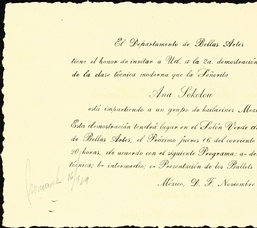 El Departamento de Bellas Artes
tiene el honor de invitar a Ud. a la 2a. demostración
de la clase técnica moderna que la Señorita
Ana Sokolow
está impartiendo a un grupo de bailarines Mex
Esta demostración tendrá lugar en el Salón Verde
de Bellas Artes, el Próximo jueves 16 del corriente
20 horas, de acuerdo con el siguiente Programa: a- de
técnica; b- intermedio; c- Presentación de los Ballets
México, D. F. Noviembre